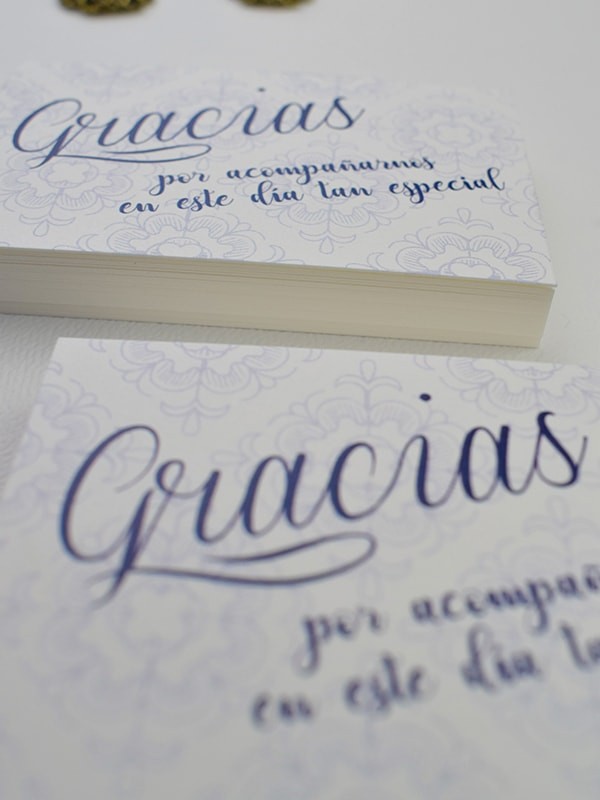 Gracias
por acompañarnos
en este día tan especial
Gracias
por acompañ
en este día ta